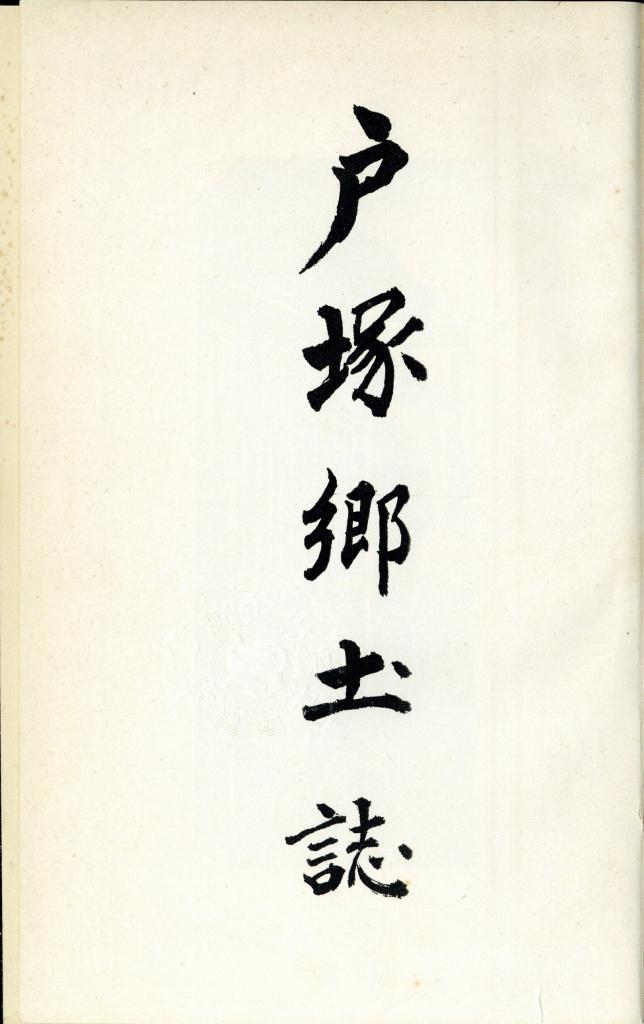 戸塚郷土誌